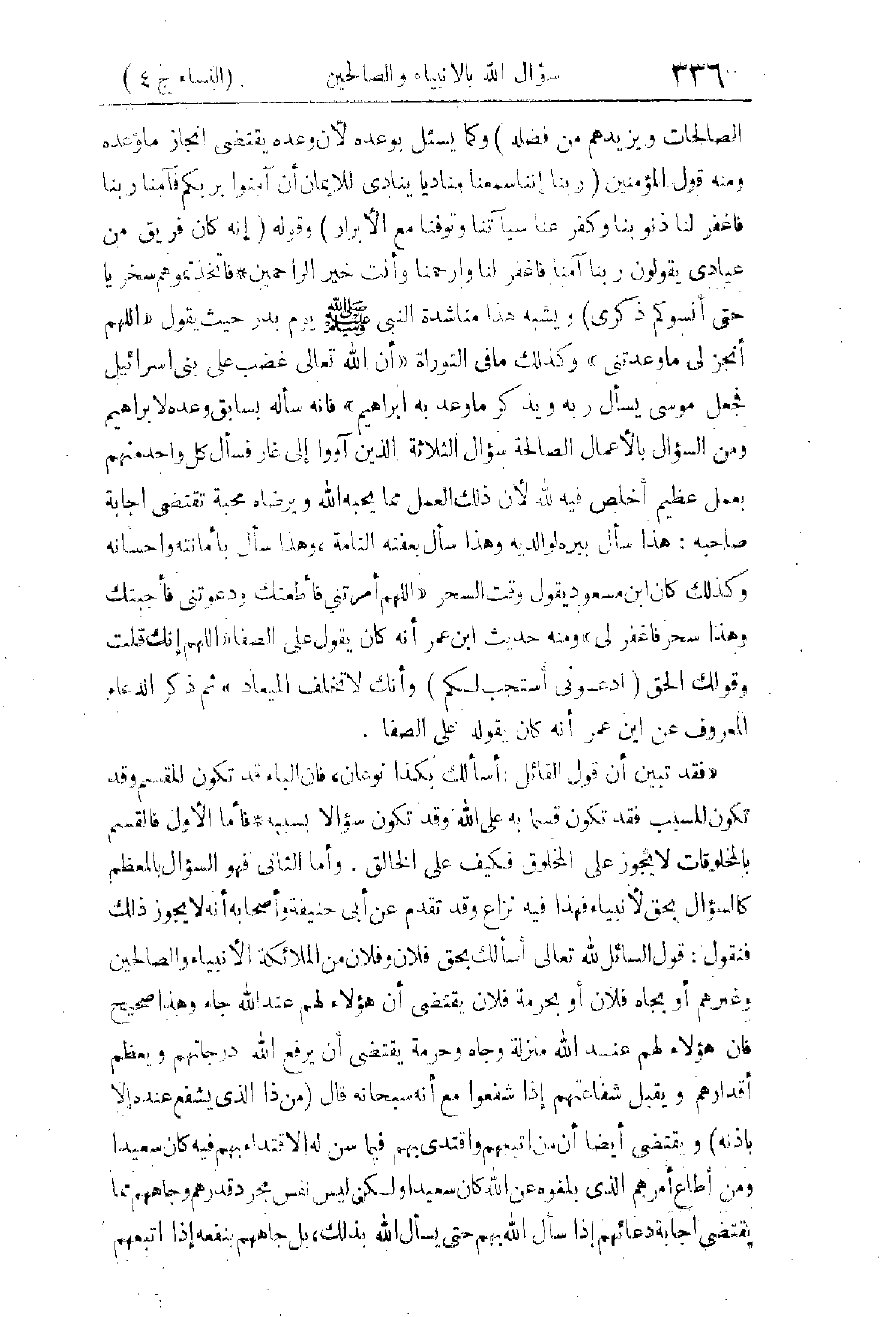 ٣٣٦ سؤال الله بالانبياء والصالحين (النساء ج ٤)
الصالحات ويزيدهم من فضله ) وكما يسئل بوعده لأن وعده يقتضى انجاز ماوعده
ومنه قول المؤمنين ( ربنا إننا سمعنا مناديا ينادى للايمان أن آمنوا بربكم فآمنا ربنا
فاغفر لنا ذنوبنا وكفر عنا سيآتنا وتوفنا مع الأبرار ) وقوله ( إنه كان فريق من
عبادى يقولون ربنا آمنا فاغفر لنا وارحمنا وأنت خير الراحمين * فاتخذتموهم سخريا
حتى أنسوكم ذكرى ) ويشبه هذا مناشدة النبى ﷺ يوم بدر حيث يقول « اللهم
أنجز لى ماوعدتنى » وكذلك مافى التوراة « أن الله تعالى غضب على بنى اسرائيل
فجعل موسى يسأل ربه ويذكر ماوعد به ابراهيم » فانه سأله بسابق وعده لابراهيم
ومن السؤال بالأعمال الصالحة سؤال الثلاثة الذين آووا إلى غار فسأل كل واحد منهم
بعمل عظيم أخلص فيه لله لأن ذلك العمل مما يحبه الله ويرضاه محبة تقتضى اجابة
صاحبه : هذا سأل ببره لوالديه وهذا سأل بعفته التامة ، وهذا سأل بأمانته واحسانه
وكذلك كان ابن مسعود يقول وقت السحر « اللهم أمرتني فأطعتك ودعوتنى فأجبتك
وهذا سحر فاغفر لى » ومنه حديث ابن عمر أنه كان يقول على الصفا « اللهم إنك قلت
وقولك الحق ( ادعونى أستجب لكم ) وأنك لا تخلف الميعاد » ثم ذكر الدعاء
المعروف عن ابن عمر أنه كان يقوله على الصفا .
« فقد تبين أن قول القائل : أسألك بكذا نوعان، فان الباء قد تكون للقسم وقد
تكون للسبب فقد تكون قسما به على الله وقد تكون سؤالا بسببه * فأما الأول فالقسم
بالمخلوقات لا يجوز على المخلوق فكيف على الخالق . وأما الثانى فهو السؤال بالمعظم
كالسؤال بحق لأنبياء فهذا فيه نزاع وقد تقدم عن أبى حنيفة وأصحابه أنه لا يجوز ذلك
فنقول : قول السائل لله تعالى أسألك بحق فلان وفلان من الملائكة الأنبياء والصالحين
وغيرهم أو بجاه فلان أو بحرمة فلان يقتضى أن هؤلاء لهم عند الله جاه وهذا صحيح
فان هؤلاء لهم عند الله منزلة وجاه وحرمة يقتضى أن يرفع الله درجاتهم ويعظم
أقدارهم ويقبل شفاعتهم إذا شفعوا مع أنه سبحانه قال (من ذا الذى يشفع عنده إلا
باذنه) ويقتضى أيضا أن من اتبعهم واقتدى بهم فيما سن له الاقتداء بهم فيه كان سعيدا
ومن أطاع أمرهم الذى بلغوه عن الله كان سعيدا ولكن ليس نفس مجرد قدرهم وجاههم مما
يقتضى اجابة دعائهم إذا سأل الله بهم حتى يسأل الله بذلك، بل جاههم ينفعه إذا اتبعهم